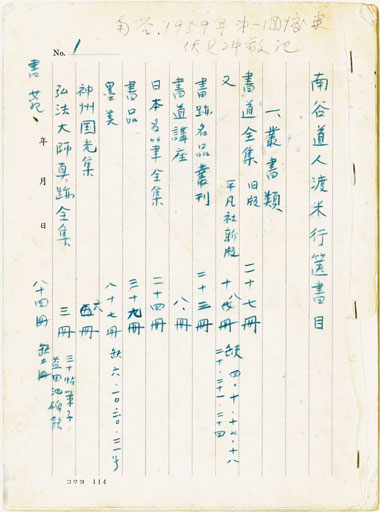 南谷、1959年第一回渡米
No. 1
南谷道人渡米行篋書目
一、叢書類
書道全集 旧版 二十七冊
又 平凡社新版 十八冊 缺 四・十・十七・十八
二十・二十一・二十四
書跡名品叢刊 二十三冊
書道講座 八冊
日本名筆全集 二十四冊
書品 三十九冊
墨美 八十七冊 缺 六・一〇・二〇・二一号
神州国光集 六冊
弘法大師真跡全集 三冊 三十帖策子
益田池碑銘
書苑 八十四冊
年 月 日
コクヨ 114